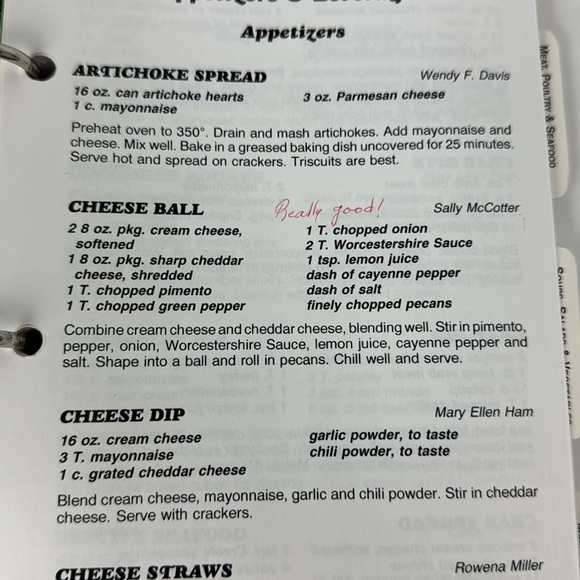 Appetizers
ARTICHOKE SPREAD Wendy F. Davis
16 oz. can artichoke hearts 3 oz. Parmesan cheese
1 c. mayonnaise
Preheat oven to 350°. Drain and mash artichokes. Add mayonnaise and
cheese. Mix well. Bake in a greased baking dish uncovered for 25 minutes.
Serve hot and spread on crackers. Triscuits are best.
CHEESE BALL Really good! Sally McCotter
2 8 oz. pkg. cream cheese, 1 T. chopped onion
softened 2 T. Worcestershire Sauce
1 8 oz. pkg. sharp cheddar 1 tsp. lemon juice
cheese, shredded dash of cayenne pepper
1 T. chopped pimento dash of salt
1 T. chopped green pepper finely chopped pecans
Combine cream cheese and cheddar cheese, blending well. Stir in pimento,
pepper, onion, Worcestershire Sauce, lemon juice, cayenne pepper and
salt. Shape into a ball and roll in pecans. Chill well and serve.
CHEESE DIP Mary Ellen Ham
16 oz. cream cheese garlic powder, to taste
3 T. mayonnaise chili powder, to taste
1 c. grated cheddar cheese
Blend cream cheese, mayonnaise, garlic and chili powder. Stir in cheddar
cheese. Serve with crackers.
CHEESE STRAWS Rowena Miller
MEAT, POULTRY & SEAFOOD
SOUPS, SALADS & VEGETABLES